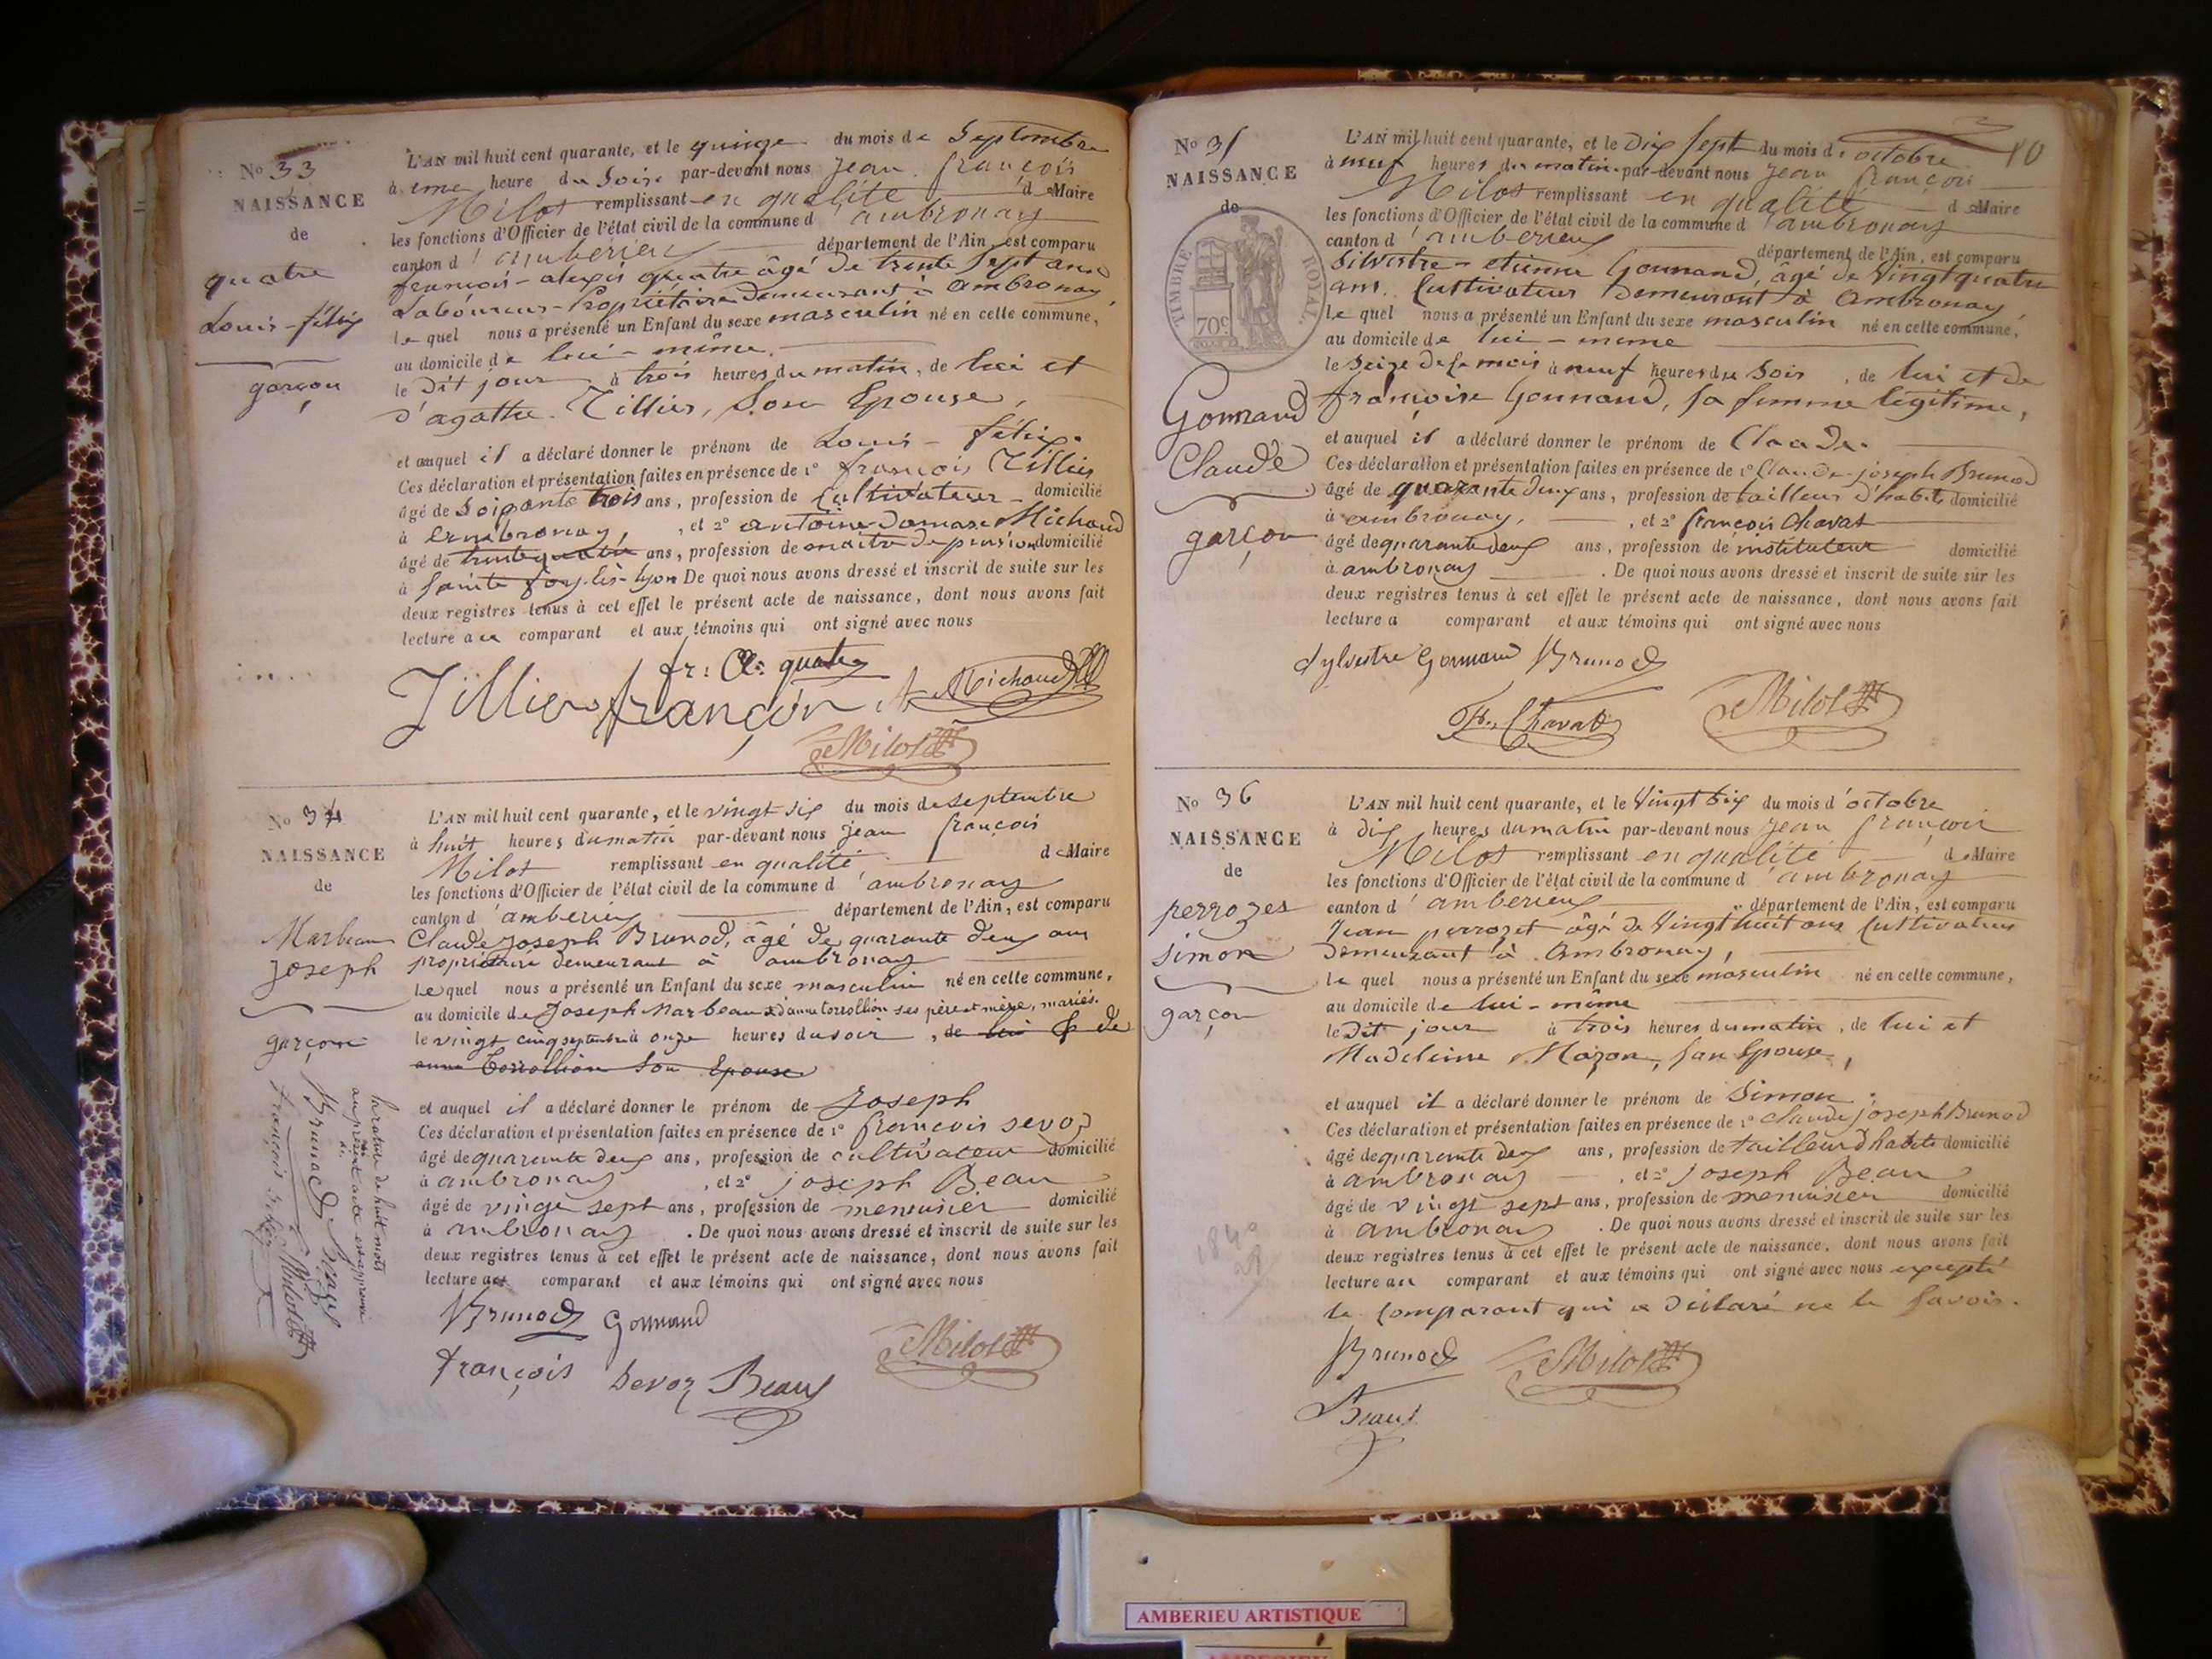 No 33
NAISSANCE
de
quatre
Louis-félix
garçon
L'AN mil huit cent quarante, et le quinze du mois de Septembre
à une heure du Soir par-devant nous jean françois
Milot remplissant en qualité de Maire
les fonctions d'Officier de l'état civil de la commune d'ambronay
canton d'amberieu département de l'Ain, est comparu
françois-alexis quatre âgé de trente sept ans
Laboureur-Propriétaire Demeurant à Ambronay,
Le quel nous a présenté un Enfant du sexe masculin né en cette commune,
au domicile de lui-même.
le Dit jour à trois heures du matin, de lui et
d'agathe Tillier, Son Epouse,
et auquel il a déclaré donner le prénom de Louis-félix.
Ces déclaration et présentation faites en présence de 1º françois Tillier
âgé de Soixante trois ans, profession de Cultivateur domicilié
à ambronay, , et 2º antoine-Damase Michaud
âgé de trente quatre ans, profession de maître de pension domicilié
à Sainte foy-lès-Lyon De quoi nous avons dressé et inscrit de suite sur les
deux registres tenus à cet effet le présent acte de naissance, dont nous avons fait
lecture au comparant et aux témoins qui ont signé avec nous
fr: A: quatre
Tillier françois A Michaud
Milot
No 34
NAISSANCE
de
Marbeau
joseph
garçon
la rature de huit mots
au présent acte est approuvée
Brunod Beau
françois Milot
L'AN mil huit cent quarante, et le vingt six du mois de septembre
à huit heures du matin par-devant nous jean françois
Milot remplissant en qualité de Maire
les fonctions d'Officier de l'état civil de la commune d'ambronay
canton d'amberieu département de l'Ain, est comparu
Claude joseph Brunod, âgé de quarante deux ans
propriétaire demeurant à ambronay
Le quel nous a présenté un Enfant du sexe masculin né en cette commune,
au domicile de Joseph Marbeau & d'anne Corrollion ses père et mère, mariés.
le vingt cinq septembre à onze heures du soir, de lui & de
anne Corrollion Son Epouse
et auquel il a déclaré donner le prénom de joseph
Ces déclaration et présentation faites en présence de 1º françois sevoz
âgé de quarante deux ans, profession de cultivateur domicilié
à ambronay , et 2º joseph Beau
âgé de vingt sept ans, profession de menuisier domicilié
à ambronay . De quoi nous avons dressé et inscrit de suite sur les
deux registres tenus à cet effet le présent acte de naissance, dont nous avons fait
lecture aux comparant et aux témoins qui ont signé avec nous
Brunod Gonnand
Milot
françois Sevoz Beau
10
No 35
NAISSANCE
de
TIMBRE ROYAL.
70c
Gonnand
Claude
garçon
L'AN mil huit cent quarante, et le Dix Sept du mois d'octobre
à neuf heures du matin par-devant nous jean françois
Milot remplissant en qualité de Maire
les fonctions d'Officier de l'état civil de la commune d'ambronay
canton d'amberieu département de l'Ain, est comparu
Silvestre-etienne Gonnand, âgé de Vingt quatre
ans, Cultivateur Demeurant à Ambronay
Le quel nous a présenté un Enfant du sexe masculin né en cette commune,
au domicile de lui-meme
le Seize de ce mois à neuf heures du Soir, de lui et de
françoise Gonnand, sa femme légitime,
et auquel il a déclaré donner le prénom de Claude.
Ces déclaration et présentation faites en présence de 1º Claude-joseph Brunod
âgé de quarante deux ans, profession de tailleur d'habits domicilié
à ambronay, , et 2º françois Chavat
âgé de quarante deux ans, profession de instituteur domicilié
à ambronay . De quoi nous avons dressé et inscrit de suite sur les
deux registres tenus à cet effet le présent acte de naissance, dont nous avons fait
lecture a comparant et aux témoins qui ont signé avec nous
Sylvestre Gonnand Brunod
Fr. Chavat Milot
No 36
NAISSANCE
de
perrozes
simon
garçon
L'AN mil huit cent quarante, et le Vingt Six du mois d'octobre
à dix heures du matin par-devant nous jean françois
Milot remplissant en qualité de Maire
les fonctions d'Officier de l'état civil de la commune d'ambronay
canton d'amberieu département de l'Ain, est comparu
Jean perrozet âgé de Vingt huit ans Cultivateur
Demeurant à Ambronay,
le quel nous a présenté un Enfant du sexe masculin né en cette commune,
au domicile de lui-même
le Dit jour à trois heures du matin, de lui et
Madeleine Mazon, Son Epouse,
et auquel il a déclaré donner le prénom de Simon.
Ces déclaration et présentation faites en présence de 1º Claude joseph Brunod
âgé de quarante deux ans, profession de tailleur d'habits domicilié
à ambronay , et 2º joseph Beau
âgé de vingt sept ans, profession de menuisier domicilié
à ambronay . De quoi nous avons dressé et inscrit de suite sur les
deux registres tenus à cet effet le présent acte de naissance, dont nous avons fait
lecture au comparant et aux témoins qui ont signé avec nous excepté
le comparant qui a Déclaré ne le Savoir.
Brunod Milot
Beau
AMBERIEU ARTISTIQUE